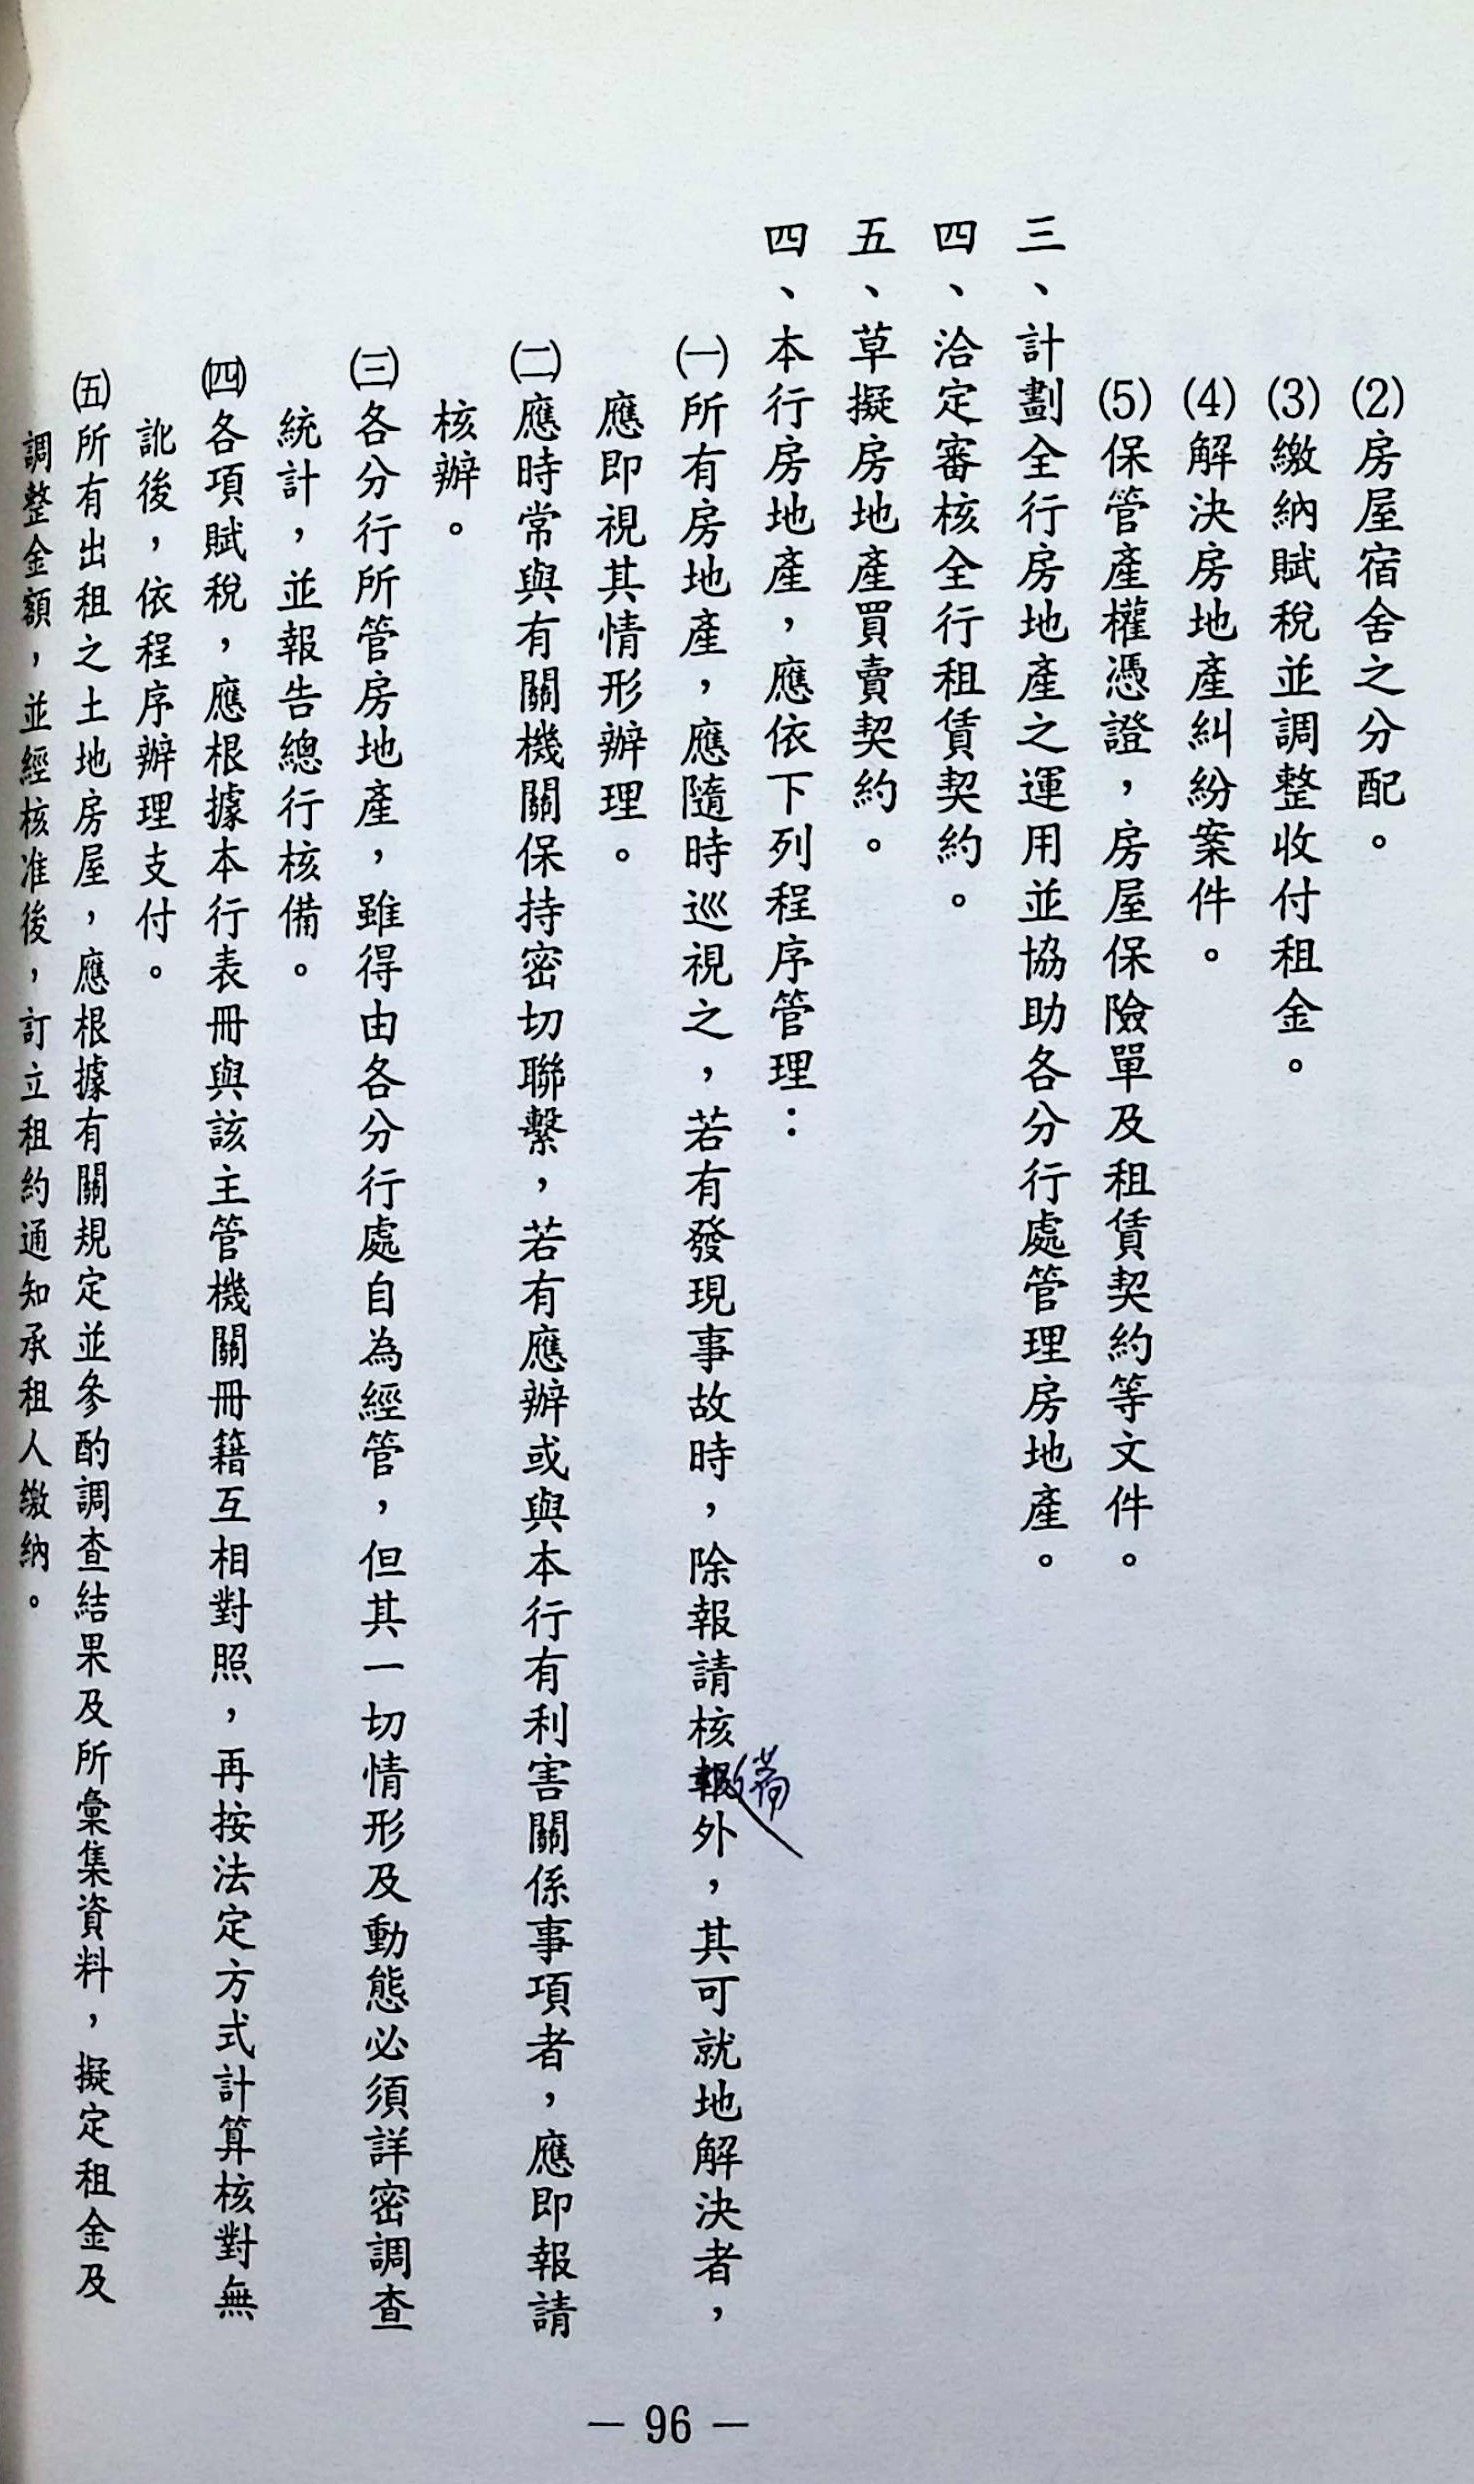 (2)房屋宿舍之分配。
(3)繳納賦稅並調整收付租金。
(4)解決房地產糾紛案件。
(5)保管產權憑證，房屋保險單及租賃契約等文件。
三、計劃全行房地產之運用並協助各分行處管理房地產。
四、洽定審核全行租賃契約。
五、草擬房地產買賣契約。
四、本行房地產，應依下列程序管理：
㈠所有房地產，應隨時巡視之，若有發現事故時，除報請核報外，其可就地解決者，
應即視其情形辦理。
㈡應時常與有關機關保持密切聯繫，若有應辦或與本行有利害關係事項者，應即報請
核辦。
㈢各分行所管房地產，雖得由各分行處自為經管，但其一切情形及動態必須詳密調查
統計，並報告總行核備。
㈣各項賦稅，應根據本行表冊與該主管機關冊籍互相對照，再按法定方式計算核對無
訛後，依程序辦理支付。
㈤所有出租之土地房屋，應根據有關規定並參酌調查結果及所彙集資料，擬定租金及
調整金額，並經核准後，訂立租約通知承租人繳納。
— 96 —